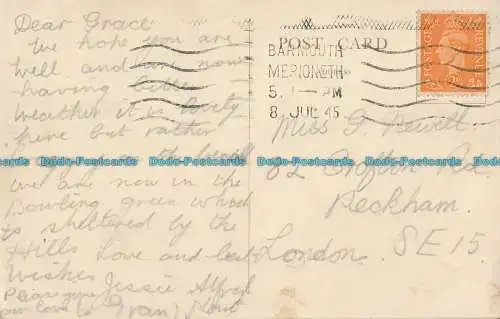 Dear Grace
We hope you are
well and are now
having better
weather it is
fine but rather
the
we are now in the
Bowling green which
is sheltered by the
Hills Love and best
Wishes
Jessie Alfred
Ivan
POST CARD
BARMOUTH
MERIONETH
5. PM
8 JUL 45
POSTAGE
REVENUE
Miss G.
82 Crofton Rd
Peckham.
London. SE 15.
Dado-Postcards Dado-Postcards Dado-Postcards Dado-Postcards Dado-Postcards